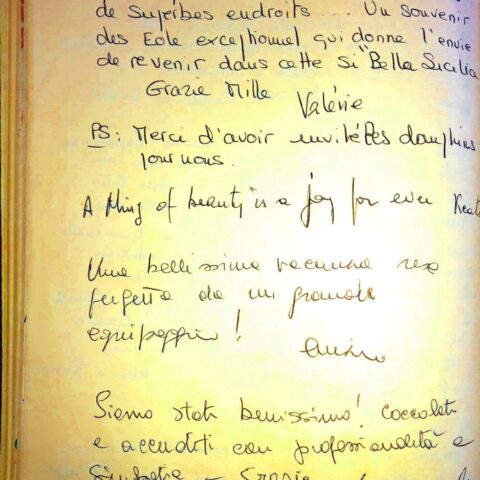 de superbes endroits.... Un souvenir
des Eole exceptionnel qui donne l'envie
de revenir dans cette si "Bella Sicilia
Grazie Mille
Valérie
PS: Merci d'avoir invité les dauphins
pour nous.
A thing of beauty is a joy for ever Keats
Una bellissima vacanza resa
perfetta da un grande
equipaggio!
Siamo stati benissimo! Coccolati
e accuditi con professionalità e
simpatia - Grazie